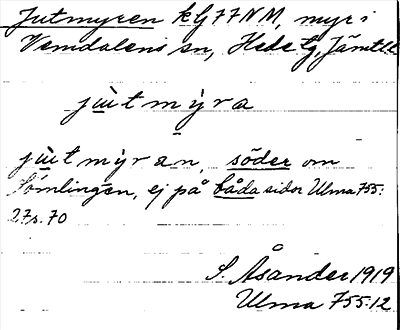 Jutmyren k Gj 77 NM, myr i
Vemdalens sn, Hede tg, Jämtl
jut myra
jut myran, söder om
Sömlingen, ej på båda sidor Ulma 755:
27 s. 70
S. Åsander 1919
Ulma 755:12